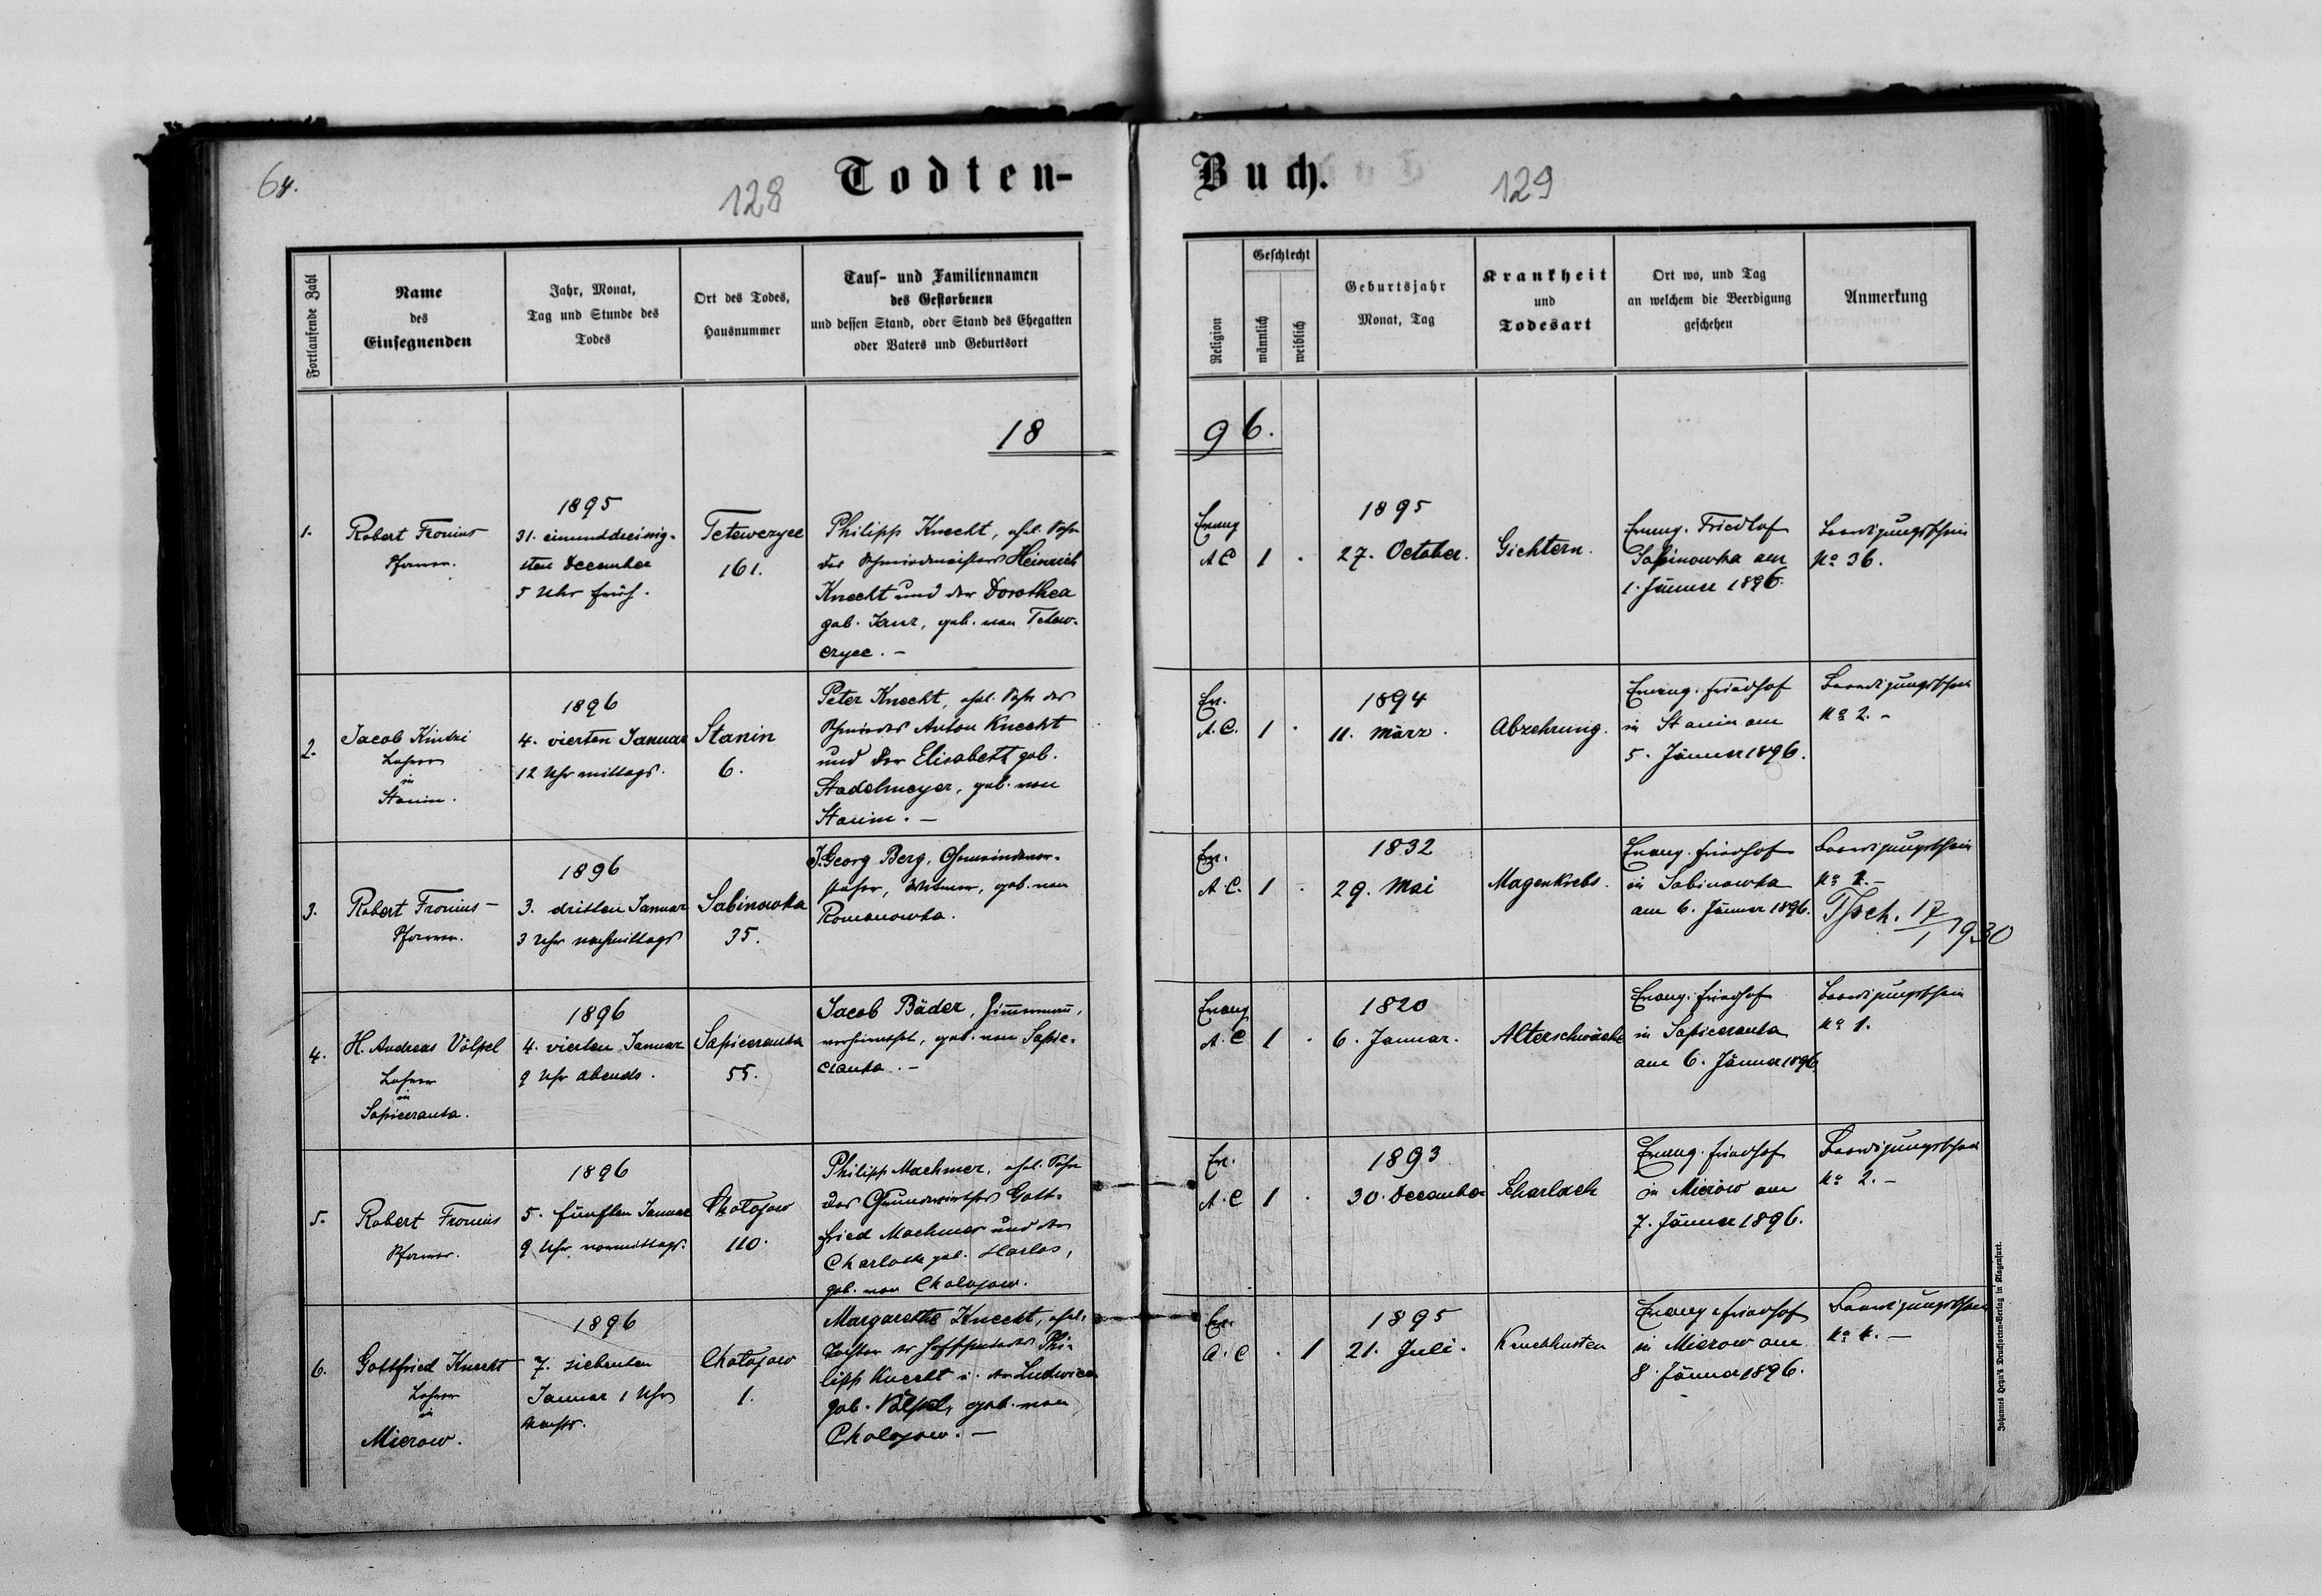 64.
128
Todten-
Buch.
129
Fortlaufende Zahl
Name
des
Einsegnenden
Jahr, Monat,
Tag und Stunde des
Todes
Ort des Todes,
Hausnummer
Tauf- und Familiennamen
des Gestorbenen
und dessen Stand, oder Stand des Ehegatten
oder Vaters und Geburtsort
Religion
Geschlecht
männlich
weiblich
Geburtsjahr
Monat, Tag
Krankheit
und
Todesart
Ort wo, und Tag
an welchem die Beerdigung
geschehen
Anmerkung
18
96.
1.
Robert Fronius
Pfarrer.
1895
31. einunddreissig-
sten December
5 Uhr früh.
Tetewczyce
161.
Philipp Knecht, ehl. Sohn
des Schmiedmeisters Heinrich
Knecht und der Dorothea
geb. Janz, geb. von Tetew-
czyce. -
Evang
A C
1
.
1895
27. October.
Gichtern.
Evang. Friedhof
Sapinowka am
1. Jänner 1896.
Beerdigungsschein
No 36.
2.
Jacob Kintzi
Lehrer
in
Stanin.
1896
4. vierten Januar
12 Uhr mittags.
Stanin
6.
Peter Knecht, ehl. Sohn des
Schmiedes Anton Knecht
und der Elisabeth geb.
Stadelmeyer, geb. von
Stanin. -
Ev.
A. C.
1
.
1894
11. März.
Abzehrung.
Evang. Friedhof
in Stanin am
5. Jänner 1896.
Beerdigungsschein
No 2. -
3.
Robert Fronius -
Pfarrer.
1896
3. dritten Januar
3 Uhr nachmittags
Sabinowka
35.
J. Georg Berg, Gemeindevor-
steher, Witwer, geb. von
Romanowka.
Ev.
A. C.
1
.
1832
29. Mai
Magenkrebs.
Evang. Friedhof
in Sabinowka
am 6. Jänner 1896.
Beerdigungsschein
No 1. -
Tsch. 17/1 1930
4.
H. Andreas Völpel
Lehrer
in
Sapiezanka.
1896
4. vierten Januar
9 Uhr abends.
Sapiezanka
55.
Jacob Bäder, Zimmermann,
verheirathet, geb. von Sapie-
zanka. -
Evang
A. C
1
.
1820
6. Januar.
Alterschwäche
Evang. Friedhof
in Sapiezanka
am 6. Jänner 1896.
Beerdigungsschein
No 1.
5.
Robert Fronius
Pfarrer.
1896
5. fünften Januar
9 Uhr vormittags.
Cholojow
110.
Philipp Machmer, ehl. Sohn
des Grundwirthes Gott-
fried Machmer und der
Charlotte geb. Harlos,
geb. von Cholojow.
Ev.
A. C
1
.
1893
30. December
Scharlach
Evang. Friedhof
in Mierów am
7. Jänner 1896.
Beerdigungsschein
No 2. -
6.
Gottfried Knecht
Lehrer
in
Mierow.
1896
7. siebenten
Januar 1 Uhr
nachts.
Cholojow
1.
Margarethe Knecht, ehel.
Tochter des Philipp Knecht u. der Ludwica
geb. Völpel, geb. von
Cholojow. -
Ev.
A. C
.
1
1895
21. Juli.
Keuchhusten
Evang. Friedhof
in Mierow am
8. Jänner 1896.
Beerdigungsschein
No 1. -
Johannes Heyn's Drucksorten-Verlag in Klagenfurt.